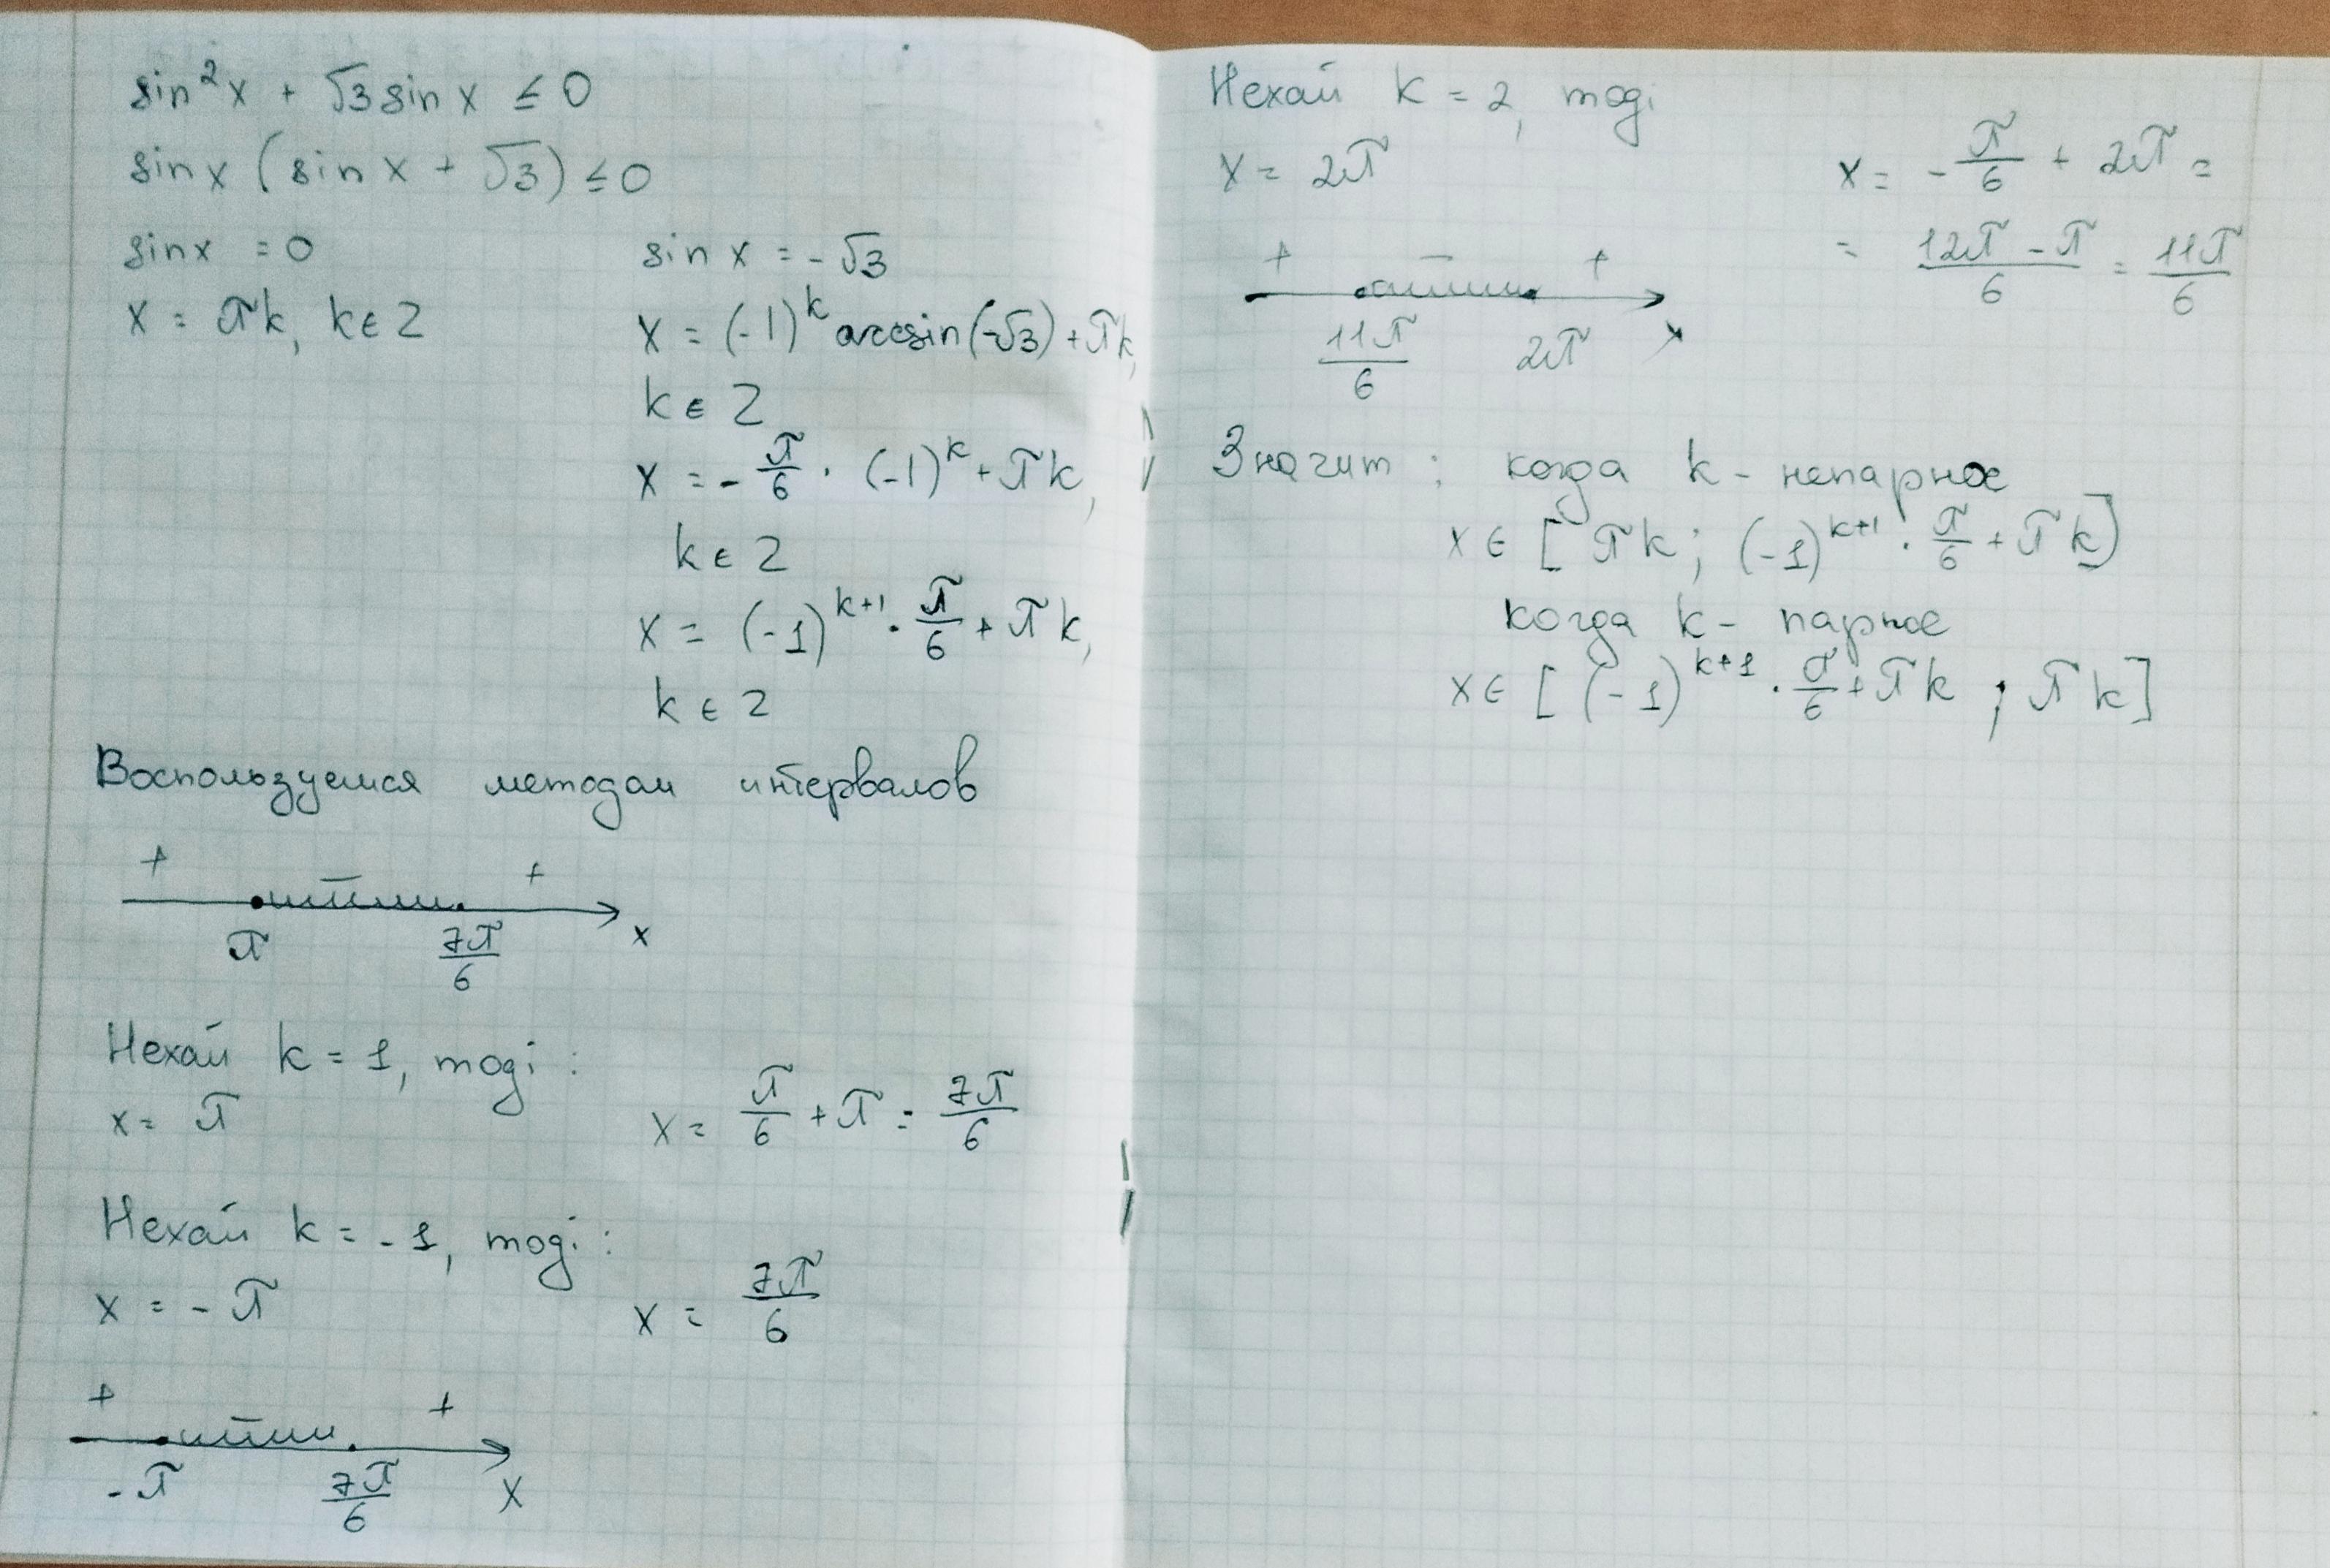 sin²x + √3 sin x ≤ 0
sin x (sin x + √3) ≤ 0
sin x = 0
x = πk, k ∈ Z
sin x = -√3
x = (-1)^k arcsin(-√3) + πk,
k ∈ Z
x = - π/6 · (-1)^k + πk,
k ∈ Z
x = (-1)^(k+1) · π/6 + πk,
k ∈ Z
Воспользуемся методом интервалов
+ − +
π 7π/6 x
Нехай k = 1, тоді :
x = π x = π/6 + π = 7π/6
Нехай k = -1, тоді :
x = - π x = 7π/6
+ − +
-π 7π/6 x
Нехай k = 2, тоді
x = 2π
x = - π/6 + 2π =
= (12π - π)/6 = 11π/6
+ − +
11π/6 2π x
Значит : когда k - непарное
x ∈ [πk; (-1)^(k+1) · π/6 + πk]
когда k - парное
x ∈ [(-1)^(k+1) · π/6 + πk ; πk]